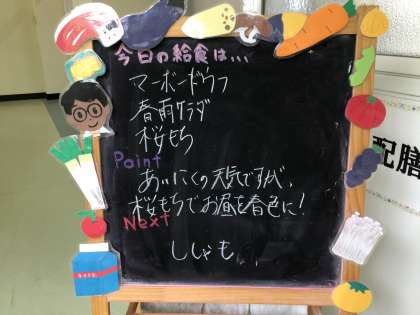 今日の給食は...
マーボードウフ
春雨サラダ
桜もち
Point
あいにくの天気ですが、
桜もちでお昼を春色に!
Next
ししゃも
配膳